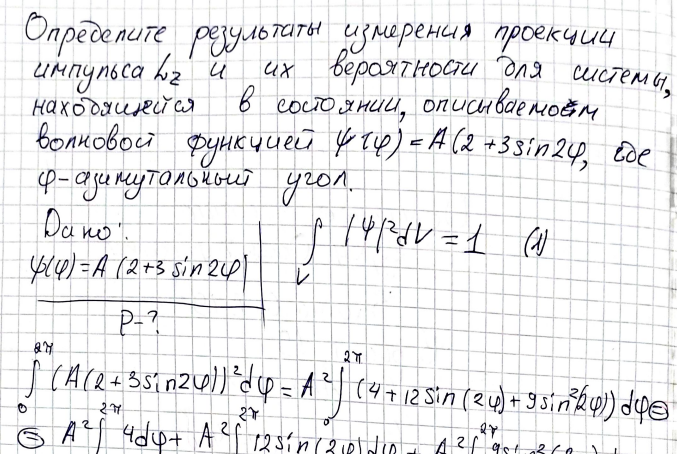 Определите результаты измерения проекции
импульса Lz и их вероятности для системы,
находящейся в состоянии, описываемом
волновой функцией ψ(φ) = A(2+3sin2φ, где
φ-азимутальный угол.
Дано:
ψ(φ)=A(2+3sin2φ)
∫V |ψ|²dV = 1 (1)
P-?
∫₀²π (A(2+3sin2φ))²dφ = A² ∫₀²π (4+12sin(2φ)+9sin²(2φ))dφ ⊜
⊜ A² ∫²π 4dφ + A² ∫²π 12sin(2φ)dφ + A² ∫²π 9sin²(2φ)